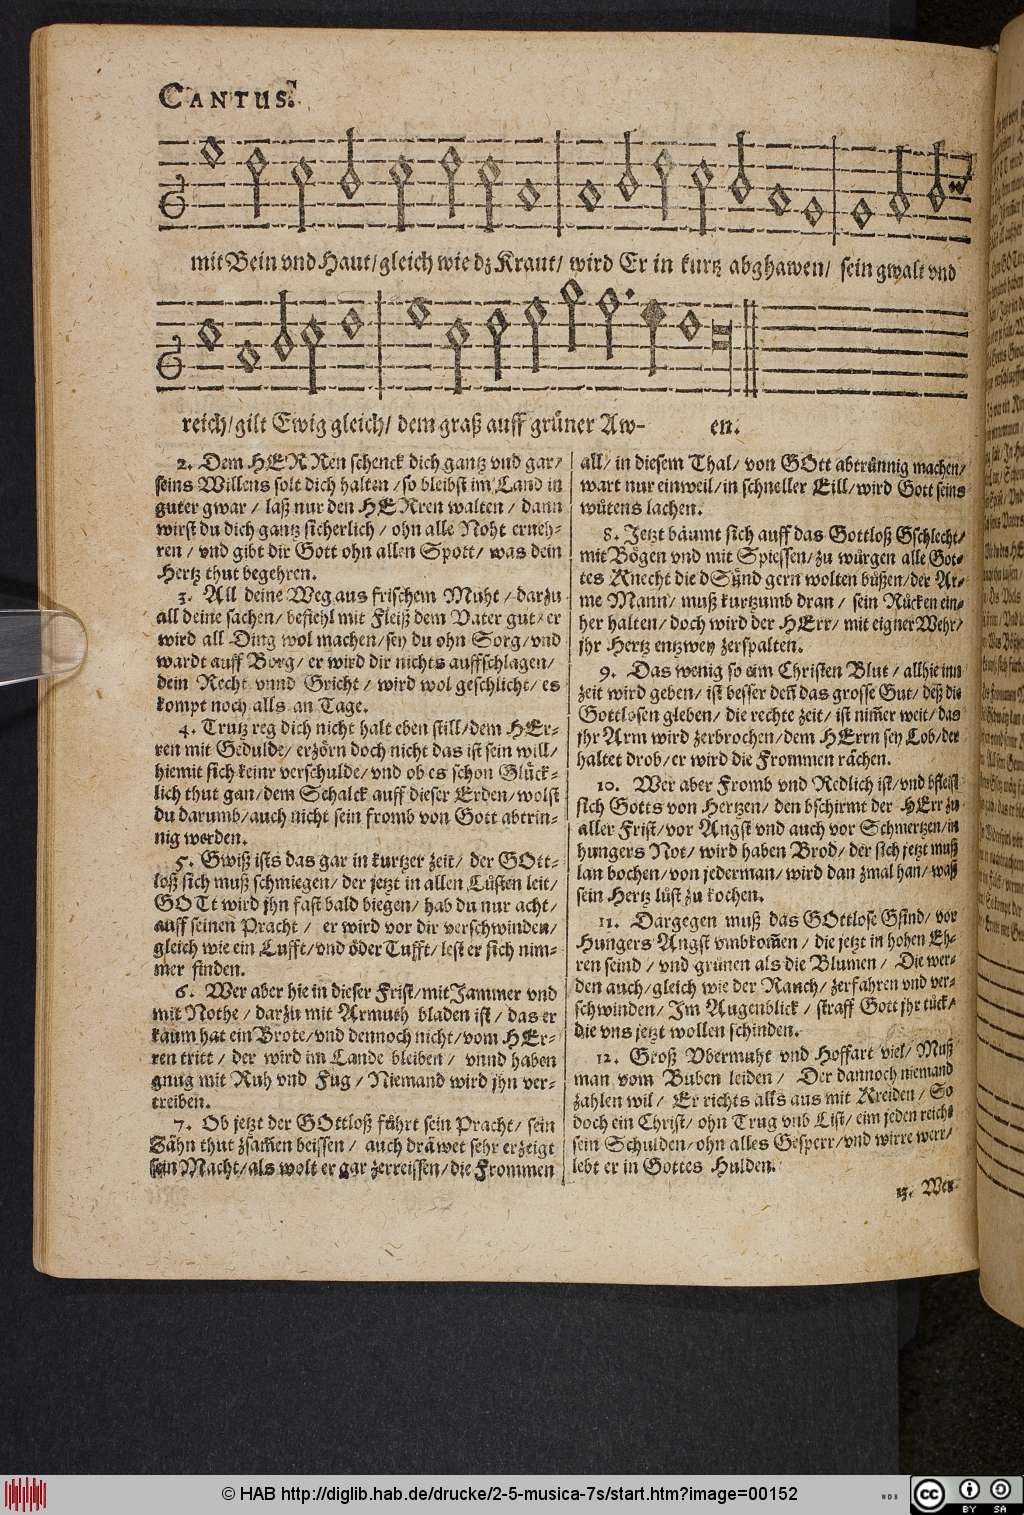 CANTUS.
mit Bein vnd Haut/gleich wie dz Kraut/ wird Er in kurtz abghawen/ sein gwalt vnd
reich/gilt Ewig gleich/ dem graß auff grüner Aw- en.
2. Dem HERRen schenck dich gantz vnd gar/
seins Willens solt dich halten/so bleibst im Land in
guter gwar/ laß nur den HERren walten/ dann
wirst du dich gantz sicherlich/ ohn alle Noht erneh-
ren/ vnd gibt dir Gott ohn allen Spott/ was dein
Hertz thut begehren.
3. All deine Weg aus frischem Muht/ darzu
all deine sachen/ befiehl mit Fleiß dem Vater gut/ er
wird all Ding wol machen/sey du ohn Sorg/vnd
wardt auff Borg/ er wird dir nichts auffschlagen/
dein Recht vnnd Gricht/ wird wol geschlicht/ es
kompt noch alls an Tage.
4. Trutz reg dich nicht halt eben still/dem HEr-
ren mit Gedulde/ erzörn doch nicht das ist sein will/
hiemit sich keinr verschulde/vnd ob es schon Glück-
lich thut gan/dem Schalck auff dieser Erden/wolst
du darumb/auch nicht sein fromb von Gott abtrin-
nig werden.
5. Gwiß ists das gar in kurtzer zeit/ der GOtt-
loß sich muß schmiegen/der jetzt in allen Lüsten leit/
GOTt wird jhn fast bald biegen/hab du nur acht/
auff seinen Pracht/ er wird vor dir verschwinden/
gleich wie ein Lufft/vnd öder Tufft/lest er sich nim-
mer finden.
6. Wer aber hie in dieser Frist/mit Jammer vnd
mit Nothe/ darzu mit Armuth bladen ist/das er
kaum hat ein Brote/vnd dennoch nicht/vom HEr-
ren tritt/ der wird im Lande bleiben/ vnnd haben
gnug mit Ruh vnd Fug/Niemand wird jhn ver-
treiben.
7. Ob jetzt der GOttloß führt sein Pracht/ sein
Zähn thut zsam̃en beissen/ auch dräwet sehr erzeigt
sein Macht/als wolt er gar zerreissen/die Frommen
all/ in diesem Thal/ von GOtt abtrünnig machen/
wart nur einweil/in schneller Eill/wird Gott seins
wütens lachen.
8. Jetzt bäumt sich auff das Gottloß Gschlecht/
mit Bögen vnd mit Spiessen/zu würgen alle Got-
tes Knecht die dSünd gern wolten büßen/der Ar-
me Mann/ muß kurtzumb dran/ sein Rücken ein-
her halten/doch wird der HErr/mit eigner Wehr/
jhr Hertz entzwey zerspalten.
9. Das wenig so eim Christen Blut/ allhie inn
zeit wird geben/ ist besser deñ das grosse Gut/ deß die
Gottlosen gleben/ die rechte zeit/ ist nim̃er weit/das
jhr Arm wird zerbrochen/dem HErrn sey Lob/der
haltet drob/er wird die Frommen rächen.
10. Wer aber Fromb vnd Redlich ist/vnd bfleist
sich Gotts von Hertzen/ den bschirmt der HErr zu
aller Frist/vor Angst vnd auch vor Schmertzen/in
hungers Not/ wird haben Brod/der sich jetzt muß
lan bochen/von jederman/wird dan zmal han/was
sein Hertz lüst zu kochen.
11. Dargegen muß das GOttlose Gsind/ vor
Hungers Angst vmbkom̃en/ die jetzt in hohen Eh-
ren seind/ vnd grünen als die Blumen/ Die wer-
den auch/gleich wie der Rauch/zerfahren vnd ver-
schwinden/Im Augenblick/ straff Gott jhr tück/
die vns jetzt wollen schinden.
12. Groß Vbermuht vnd Hoffart viel/ Muß
man vom Buben leiden/ Der dannoch niemand
zahlen wil/ Er richts alls aus mit Kreiden/ So
doch ein Christ/ohn Trug vnd List/eim jeden reicht
sein Schulden/ohn alles Gesperr/vnd wirre werr/
lebt er in Gottes Hulden.
13. Wer
© HAB http://diglib.hab.de/drucke/2-5-musica-7s/start.htm?image=00152
WDB
cc BY SA